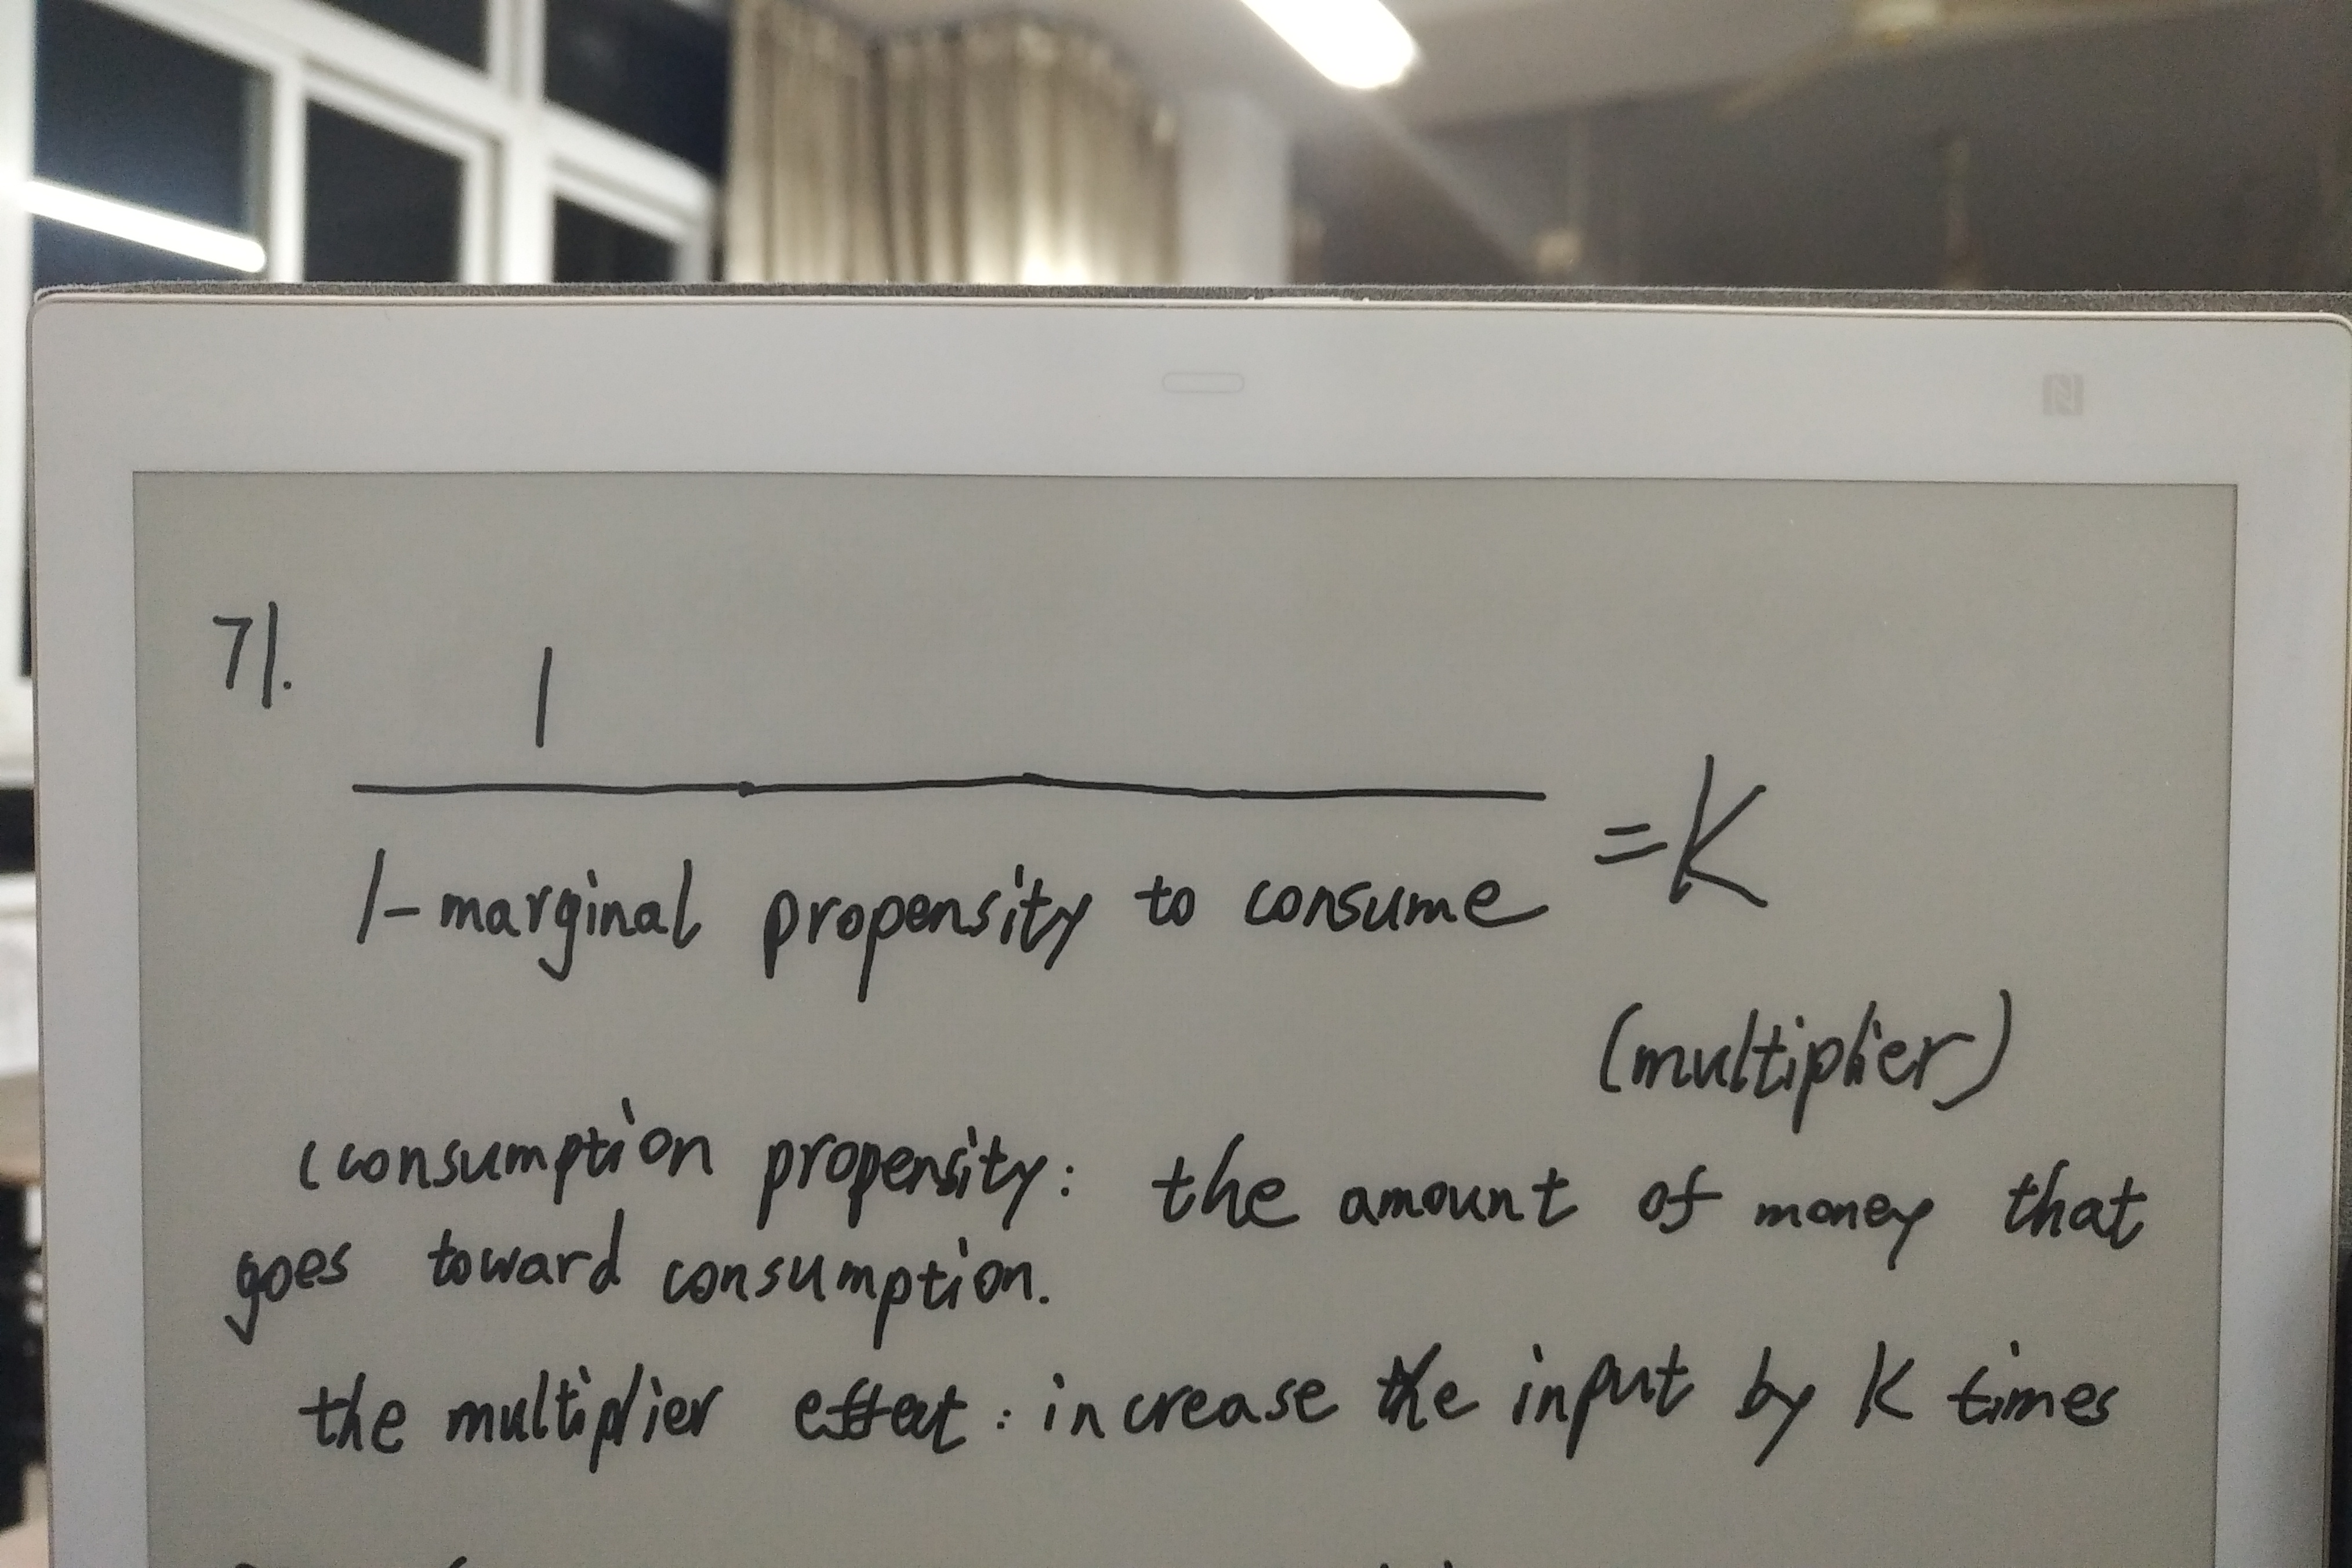 71.
1
1-marginal propensity to consume
=K
(multiplier)
(consumption propensity: the amount of money that
goes toward consumption.
the multiplier effect: increase the input by K times